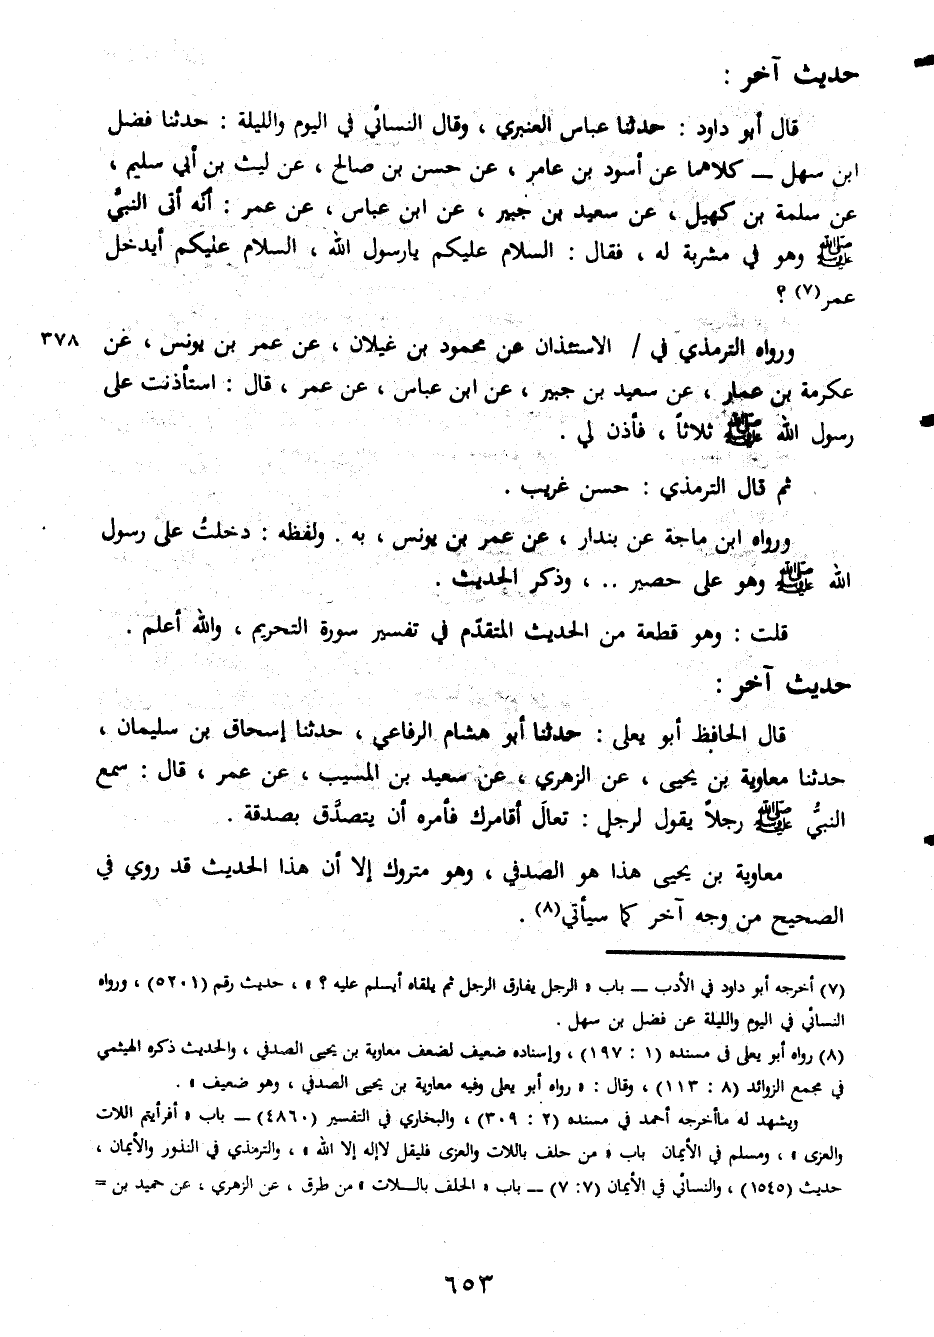 حديث آخر :
قال أبو داود : حدثنا عباس العنبري ، وقال النسائي في اليوم والليلة : حدثنا فضل
ابن سهل ــ كلاهما عن أسود بن عامر ، عن حسن بن صالح ، عن ليث بن أبي سليم ،
عن سلمة بن كهيل ، عن سعيد بن جبير ، عن ابن عباس ، عن عمر : أنّه أتى النبيَّ
ﷺ وهو في مشربة له ، فقال : السلام عليكم يارسول الله ، السلام عليكم أيدخل
عمر(٧) ؟
ورواه الترمذي في / الاستئذان عن محمود بن غيلان ، عن عمر بن يونس ، عن ٣٧٨
عكرمة بن عمار ، عن سعيد بن جبير ، عن ابن عباس ، عن عمر ، قال : استأذنت على
رسول الله ﷺ ثلاثاً ، فأذن لي .
ثم قال الترمذي : حسن غريب .
ورواه ابن ماجة عن بندار ، عن عمر بن يونس ، به . ولفظه : دخلتُ على رسول
الله ﷺ وهو على حصير .. ، وذكر الحديث .
قلت : وهو قطعة من الحديث المتقدّم في تفسير سورة التحريم ، والله أعلم .
حديث آخر :
قال الحافظ أبو يعلى : حدثنا أبو هشام الرفاعي ، حدثنا إسحاق بن سليمان ،
حدثنا معاوية بن يحيى ، عن الزهري ، عن سعيد بن المسيب ، عن عمر ، قال : سمع
النبيُّ ﷺ رجلاً يقول لرجل : تعالَ أقامرك فأمره أن يتصدَّق بصدقة .
معاوية بن يحيى هذا هو الصدفي ، وهو متروك إلا أن هذا الحديث قد روي في
الصحيح من وجه آخر كما سيأتي(٨) .
(٧) أخرجه أبو داود في الأدب ــ باب « الرجل يفارق الرجل ثم يلقاه أيسلم عليه ؟ » ، حديث رقم (٥٢٠١) ، ورواه
النسائي في اليوم والليلة عن فضل بن سهل .
(٨) رواه أبو يعلى فى مسنده (١ : ١٩٧) ، وإسناده ضعيف لضعف معاوية بن يحيى الصدفي ، والحديث ذكره الهيثمي
في مجمع الزوائد (٨ : ١١٣) ، وقال : « رواه أبو يعلى وفيه معاوية بن يحيى الصدفي ، وهو ضعيف » .
ويشهد له ماأخرجه أحمد في مسنده (٢ : ٣٠٩) ، والبخاري في التفسير (٤٨٦٠) ــ باب « أفرأيتم اللات
والعزى » ، ومسلم في الأيمان باب « من حلف باللات والعزى فليقل لاإله إلا الله » ، والترمذي في النذور والأيمان ،
حديث (١٥٤٥) ، والنسائي في الأيمان (٧ : ٧) ــ باب « الحلف بالــلات » من طرق ، عن الزهري ، عن حميد بن =
٦٥٣